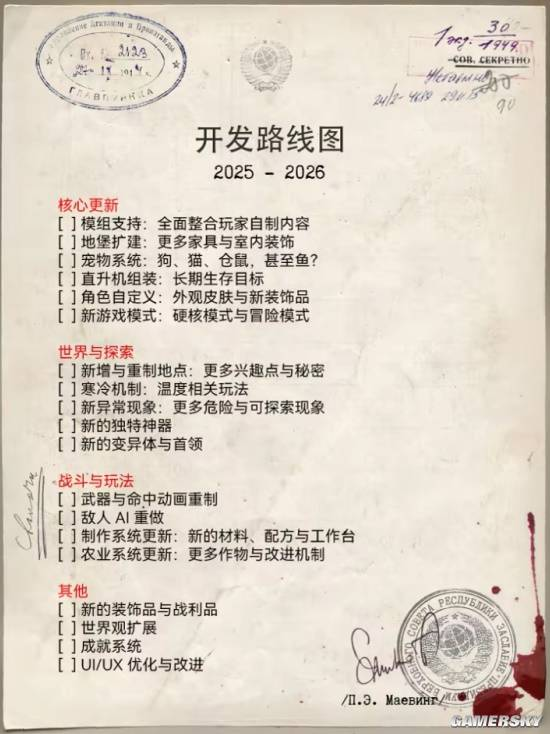 30
1 экз.
1949.
СОВ. СЕКРЕТНО
ГЛАВПУРККА
开发路线图
2025 - 2026
核心更新
[ ] 模组支持：全面整合玩家自制内容
[ ] 地堡扩建：更多家具与室内装饰
[ ] 宠物系统：狗、猫、仓鼠，甚至鱼？
[ ] 直升机组装：长期生存目标
[ ] 角色自定义：外观皮肤与新装饰品
[ ] 新游戏模式：硬核模式与冒险模式
世界与探索
[ ] 新增与重制地点：更多兴趣点与秘密
[ ] 寒冷机制：温度相关玩法
[ ] 新异常现象：更多危险与可探索现象
[ ] 新的独特神器
[ ] 新的变异体与首领
战斗与玩法
[ ] 武器与命中动画重制
[ ] 敌人 AI 重做
[ ] 制作系统更新：新的材料、配方与工作台
[ ] 农业系统更新：更多作物与改进机制
其他
[ ] 新的装饰品与战利品
[ ] 世界观扩展
[ ] 成就系统
[ ] UI/UX 优化与改进
/П.Э. Маевинг/
GAMERSKY